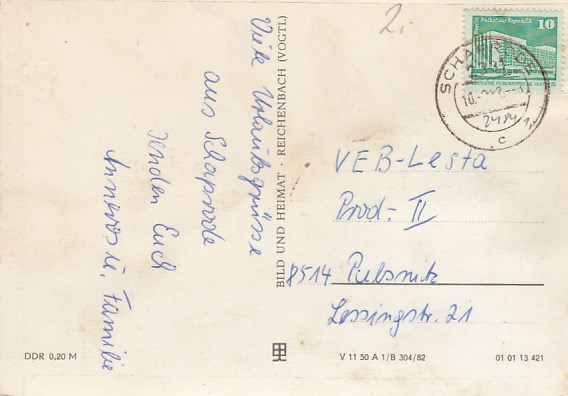 2.-
Palast der Republik 10
SCHAPRODE
2484
c
Viele Urlaubsgrüsse
aus Schaprode
senden Euch
Anneros u. Familie
BILD UND HEIMAT · REICHENBACH (VOGTL)
VEB-Lesta
Prod.- II
8514 Pulsnitz
Lessingstr. 21
DDR 0,20 M
V 11 50 A 1/B 304/82
01 01 13 421